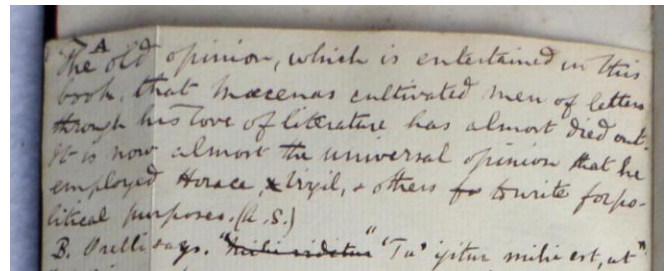 A
The old opinion, which is entertained in this
book, that Mæcenas cultivated men of letters
through his love of literature has almost died out.
It is now almost the universal opinion that he
employed Horace, Virgil, & others to write for po-
litical purposes. (A. S.)
B. Orelli says. "mihi videtur" "Tu" igitur mihi est, ut"